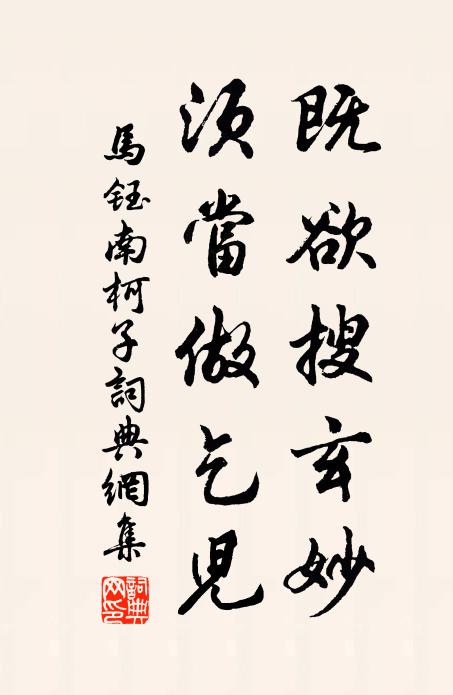 既欲搜玄妙
須當做乞児
馬鈺南柯子詞典網集
詞典
网印